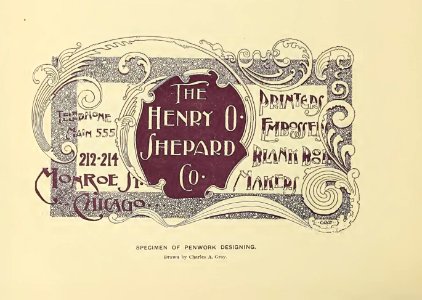 THE
HENRY O.
SHEPARD
CO.
TELEPHONE
MAIN 555
212-214
MONROE ST.
CHICAGO
PRINTERS
EMBOSSERS
BLANK BOOK
MAKERS
SPECIMEN OF PENWORK DESIGNING.
Drawn by Charles A. Gray.